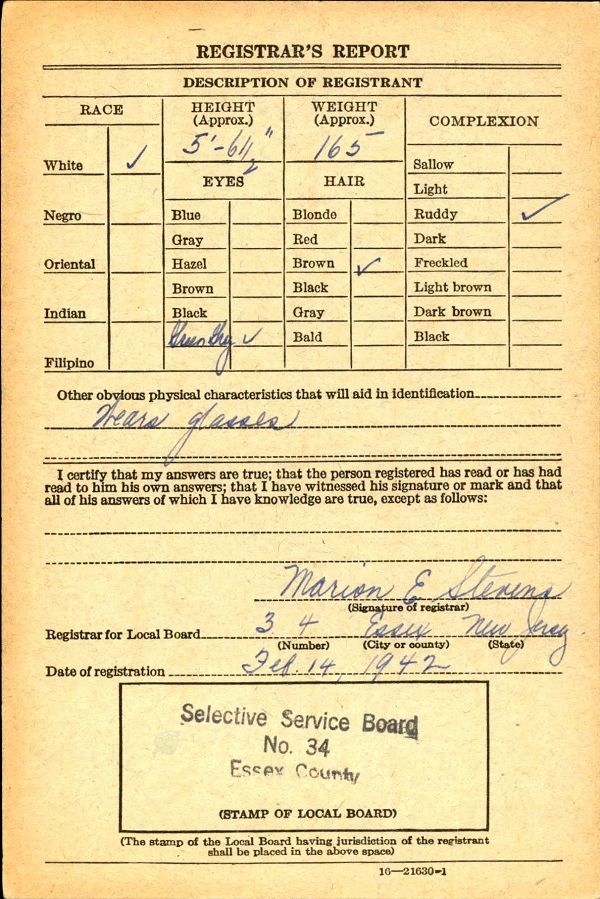 REGISTRAR'S REPORT
DESCRIPTION OF REGISTRANT
RACE
HEIGHT
(Approx.)
WEIGHT
(Approx.)
COMPLEXION
5'-6 1/2"
165
White ✓
Sallow
EYES
HAIR
Light
Negro
Blue
Blonde
Ruddy ✓
Gray
Red
Dark
Oriental
Hazel
Brown ✓
Freckled
Brown
Black
Light brown
Indian
Black
Gray
Dark brown
✓
Bald
Black
Filipino
Other obvious physical characteristics that will aid in identification
Wears glasses
I certify that my answers are true; that the person registered has read or has had
read to him his own answers; that I have witnessed his signature or mark and that
all of his answers of which I have knowledge are true, except as follows:
Marion E Stevens
(Signature of registrar)
Registrar for Local Board 34 Essex New Jersey
(Number) (City or county) (State)
Date of registration Feb. 14, 1942
Selective Service Board
No. 34
Essex County
(STAMP OF LOCAL BOARD)
(The stamp of the Local Board having jurisdiction of the registrant
shall be placed in the above space)
16—21630-1